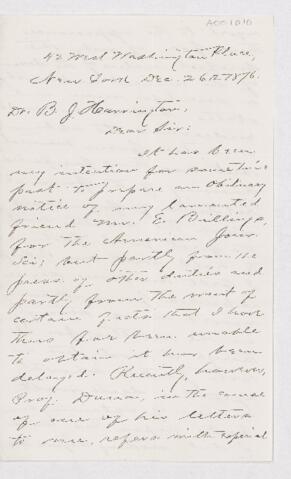 ACC1010
42 West Washington Place,
New York Dec. 26th 1876.
Dr. B. J. Harrington,
Dear Sir:
It has been
my intention for sometime
past to prepare an Obituary
notice of my lamented
friend Mr. E. Billings,
for the American Jour.
Sci; but partly from the
press of other duties and
partly from the want of
certain facts that I have
thus far been unable
to obtain it has been
delayed. Recently, however,
Prof. Dana, in the course
of one of his letters
to me, refers with especial